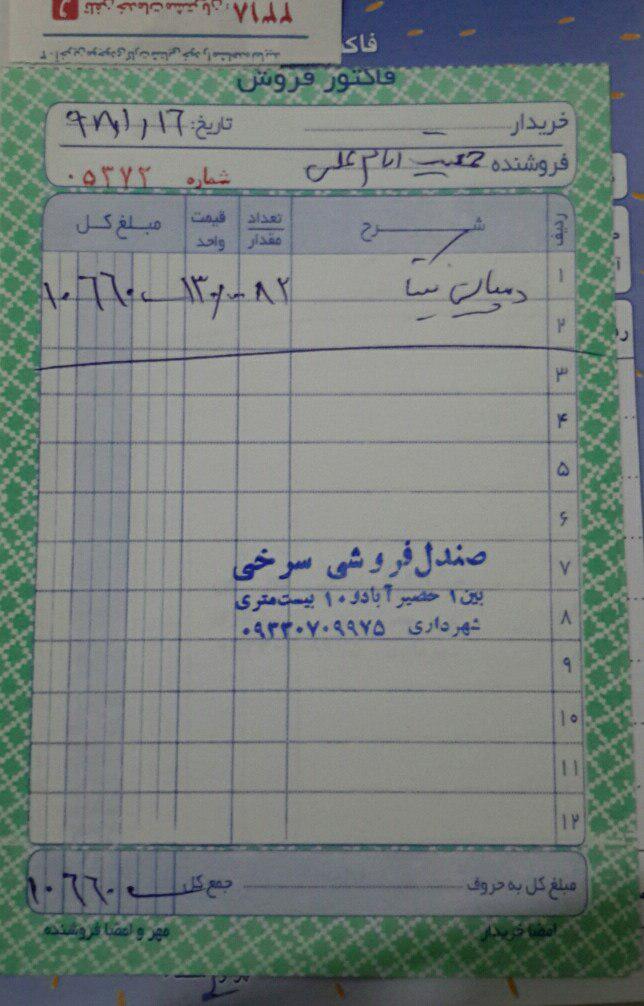 ۲۲۱۸
تلفن خدمات مشتریان:
فاک
فاکتور فروش
خریدار
تاریخ: ۹۸/۱/۱۶
فروشنده جمعیت امام علی
شماره ۰۵۳۷۲
ردیف شرح تعداد مقدار قیمت واحد مبلغ کل
۱ دمپایی ۸۲ ۱۳۰/۰۰۰ ۱۰۶۶۰
۲
۳
۴
۵
۶
۷
صندل فروشی سرخی
بین ۱ حصیر آبادو ۱۰ بیست متری
۸
شهرداری ۰۹۳۳۰۷۰۹۹۷۵
۹
۱۰
۱۱
۱۲
مبلغ کل به حروف جمع کل ۱۰۶۶۰
امضا خریدار مهر و امضا فروشنده